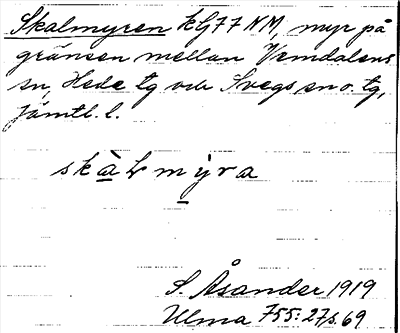 Skalmyren kG77 NM, myr på
gränsen mellan Vemdalens
sn, Hede tg och Svegs sn o. tg,
Jämtl. l.
skàLmỳra
S. Åsander 1919
Ulma 755:27 s. 69